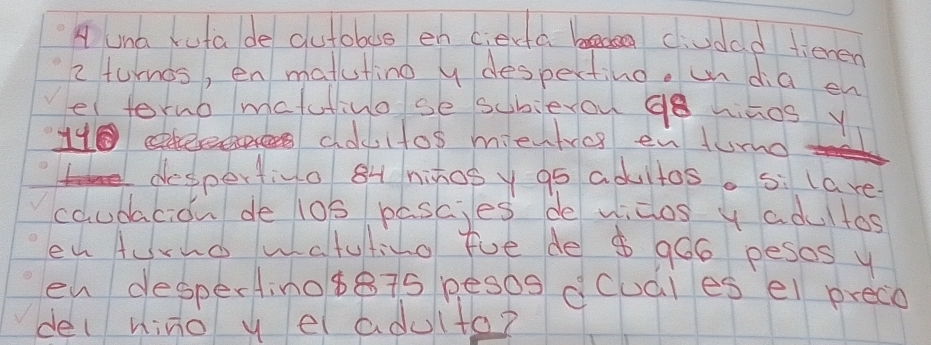 A una ruta de autobus en cierta ciudad tienen
2 turnos, en matutino y despertino. un dia en
el torno matutino se subieron 98 niños y
110 adultos mientras en turno
despertino 84 niños y 95 adultos. si la re-
caudación de los pasajes de niños y adultos
en turno matutino fue de $ 966 pesos y
en despertino $875 pesos ¿Cual es el precio
del niño y el adulto?